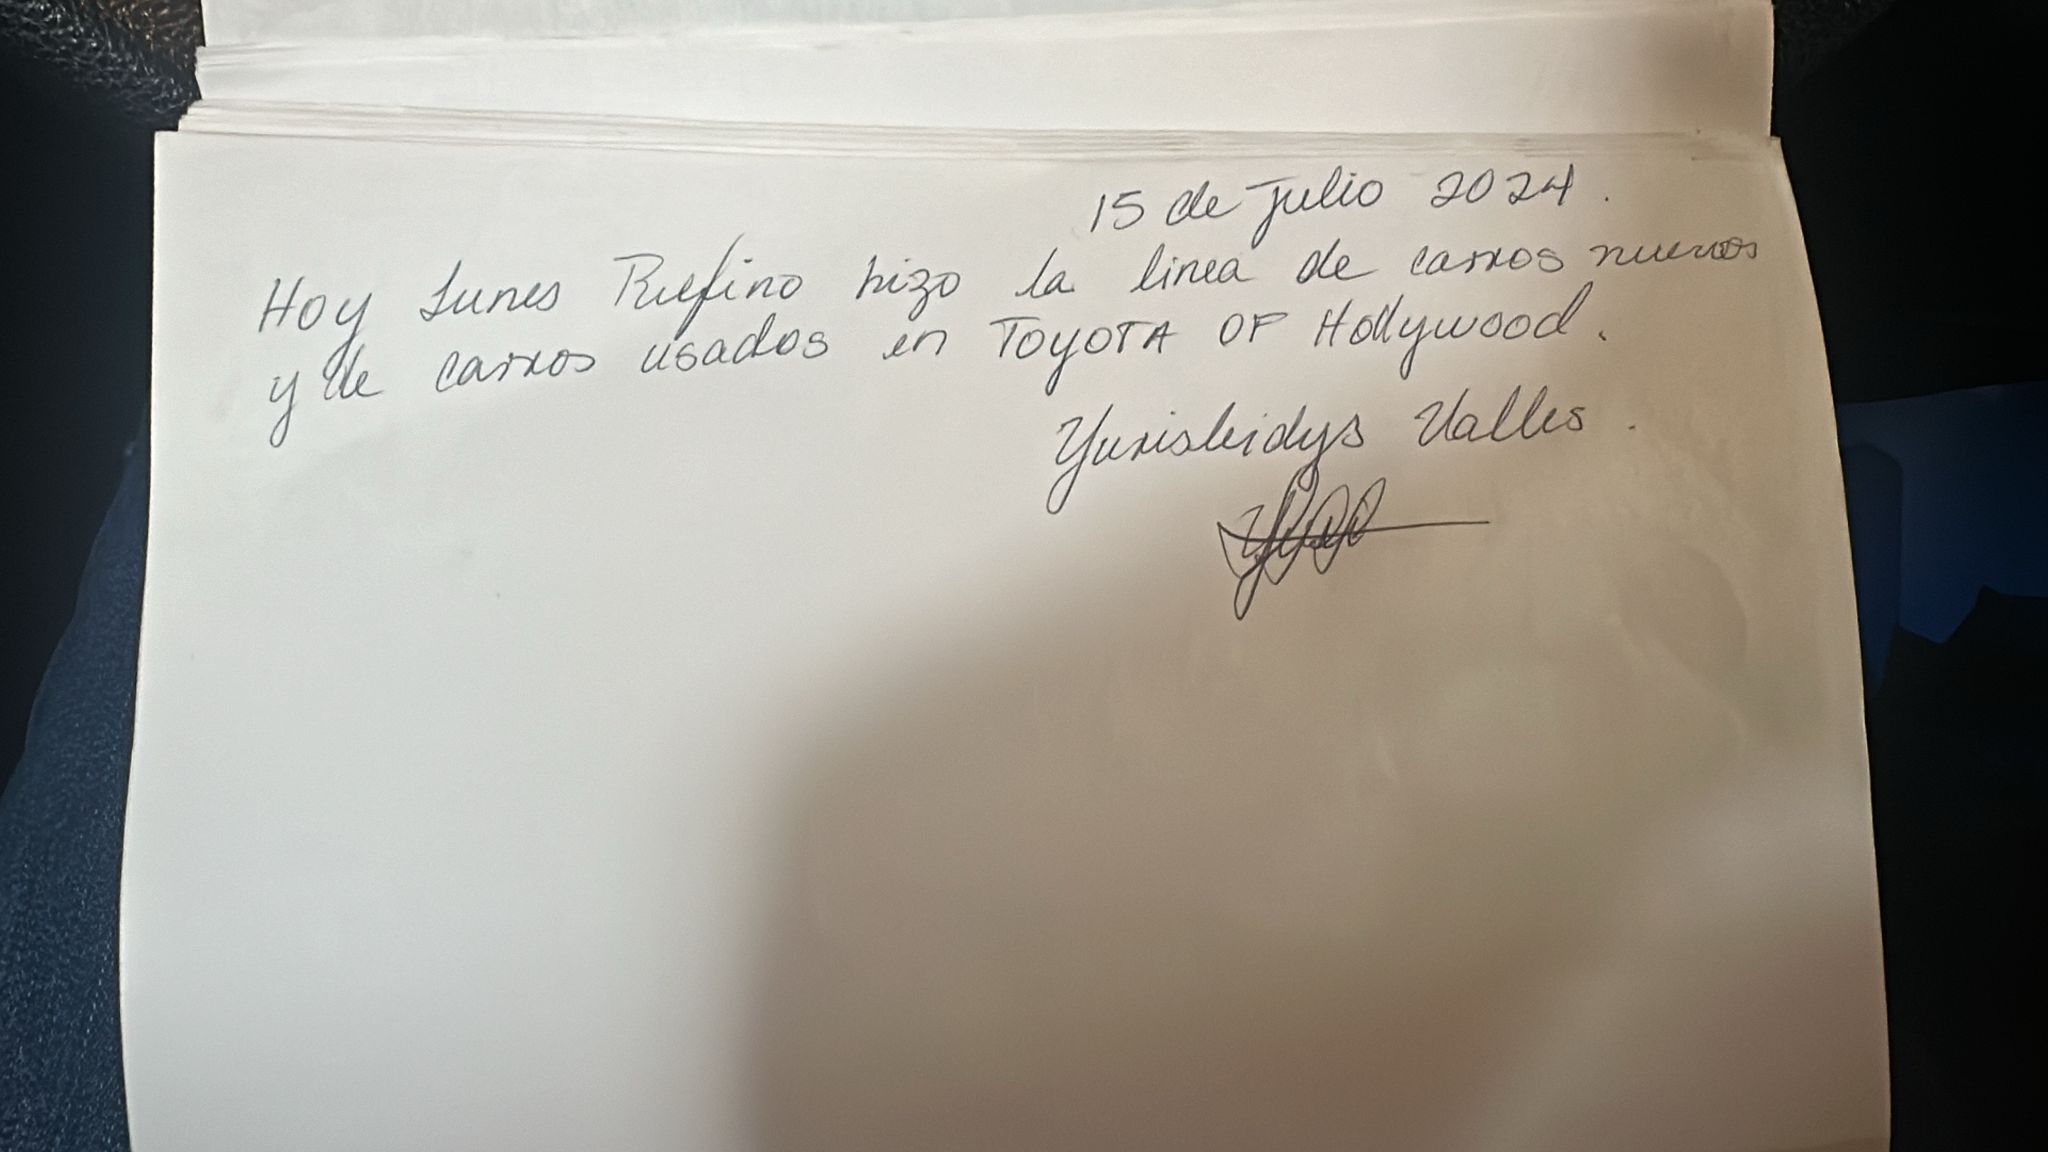 15 de Julio 2024.
Hoy Lunes Rufino hizo la linea de carros nuevos
y de carros usados en TOYOTA OF Hollywood.
Yurisleidys Valles.